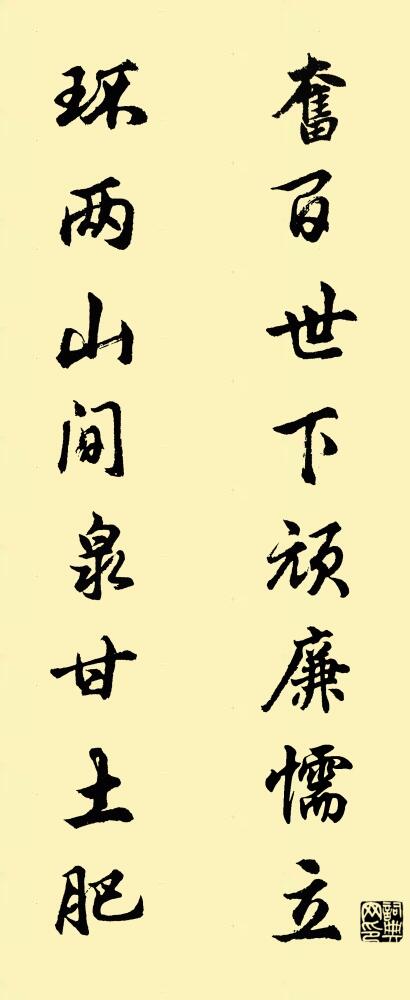 奮百世下頑廉懦立
环两山间泉甘土肥
詞典網印